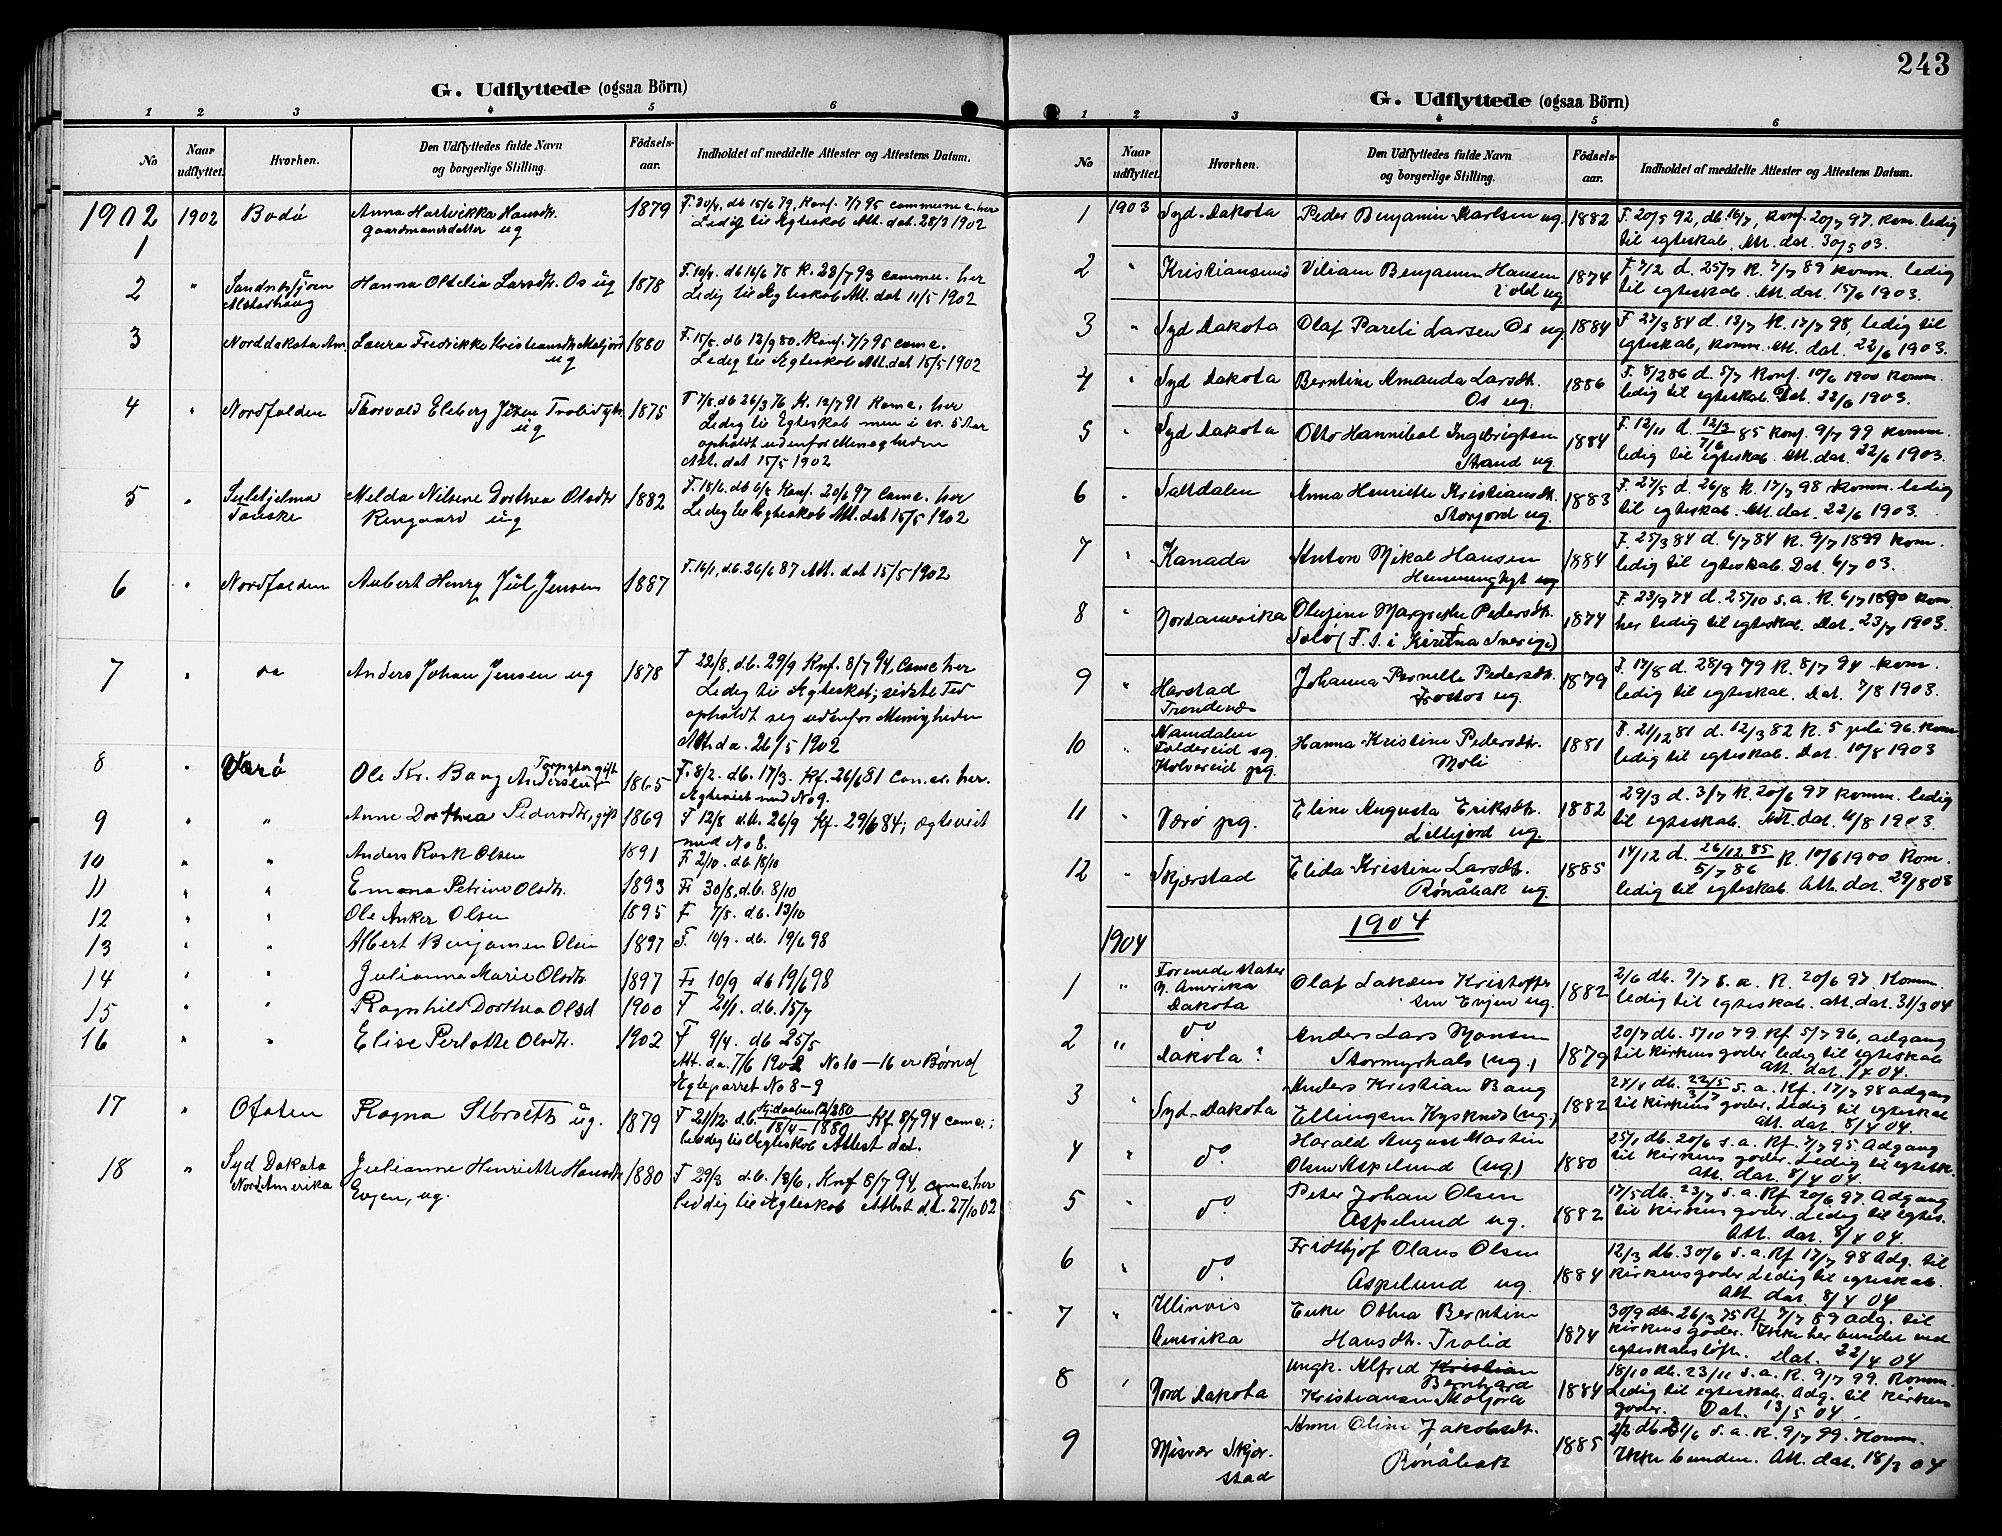 G. Udflyttede (ogsaa Börn)
1 2 3 4 5 6
No Naar udflyttet. Hvorhen. Den Udflyttedes fulde Navn og borgerlige Stilling. Födsels-aar. Indholdet af meddelte Attester og Attestens Datum.
1902
1 1902 Bodö Anna Hartvikka Hansdtr. 1879 F. 30/4. db 15/6 79. Konf. 7/7 95 commune c. her
gaardmandsdatter ug Ledig til Egteskab Att. dat. 28/3 1902
2 " Sandnessjöen Hanna Oltelia Larsdtr. Os ug 1878 F. 10/4. db 16/6 78 K. 23/7 93 commu. her
Alstahaug Ledig til Egteskab Att. dat 11/5 1902
3 Norddakota Am. Laura Fredrikke Kristiansdtr Moljord 1880 F. 15/5. db 12/9 80. Konf. 7/7 95 comc.
ug Ledig til Egteskab Att. dat 15/5 1902
4 " Nordfolden Thorvald Elsberg Jsen Trolid 1875 db 26/3 76 K. 12/7 91 Komc. her
ug Ledig til Egteskab men i 5 Aar
opholdt udenfor Menigheden
Att. dat 15/5 1902
5 " Sulitjelma Melda Nilsine Dorthea Olsdtr 1882 F. 18/6. db 6/8 Konf. 20/6 97 Comc. her
ug Ledig til Egteskab Att. dat 15/5 1902
6 " Nordfolden Aubert Henry Jul Jensen 1887 F. 16/1, db. 26/6 87 Att. dat 15/5 1902
7 " do Anders Johan Jensen ug 1878 F 22/8. db. 29/9 Knf. 8/7 94, Comc her
Ledig til Egteskab; sidste Tid
opholdt seg udenfor Menigheden
Att. da. 26/5 1902
8 " Værö Ole Kr. Bang Andersen gift 1865 F. 8/2. db. 17/3. Kf. 26/6 81 com. her.
Egteviet med No 9.
9 " " Anne Dorthea Pedersdtr, gift 1869 F 12/8 db. 26/9 Kf. 29/6 84; egteviet
med No 8.
10 " " Anders Rosk Olsen 1891 F 2/10. db. 18/10
11 " " Emma Petrine Olsdtr. 1893 Fr 30/8. db. 8/10
12 " " Ole Anker Olsen 1895 F 7/8. db. 13/10
13 " " Albert Benjamin Olsen 1897 F. 10/9. db. 19/6 98
14 " " Julianna Marie Olsdtr. 1897 Fr 10/9 db 19/6 98
15 " " Ragnhild Dorthea Olsd 1900 F 21/1. db. 15/7
16 " " Elise Perlotte Olsdtr. 1902 F 9/4. db 25/5
Att. da. 7/6 1902 No 10 — 16 er Børn af
Egteparret No 8 – 9
17 " Ofoten Ragna Storseth ug. 1879 F 21/12 db. 18/4 – 1880 Kf 8/7 94 comc.;
leddig til Egteskab Attest dat.
18 " Syd Dakota Julianne Henriette Hansdtr 1880 F 29/3 db. 13/6, Knf 8/7 94, comc. her
Nord Amerika Evjen, ug. leddig til Egteskab Attest d.d. 27/10 02
243
G. Udflyttede (ogsaa Börn)
1 2 3 4 5 6
No Naar udflyttet. Hvorhen. Den Udflyttedes fulde Navn og borgerlige Stilling. Födsels-aar. Indholdet af meddelte Attester og Attestens Datum.
1 1903 Syd-Dakota Peder Benjamin Karlsen ug. 1882 F. 20/5 92, db. 16/7, konf. 20/7 97. kom. ledig
til egteskab. Att. dat. 30/5 03.
2 " Kristiansund Viliam Benjamin Hansen 1874 F. 7/2 d. 25/7 K. 7/7 89 komm. ledig
ug til egteskab. Att. dat. 15/6 1903.
3 " Syd Dakota Olaf Pareli Larsen Os ug 1884 F. 27/3 84 d. 13/7 K. 17/7 98, ledig til
egteskab, komm. Att. dat. 22/6 1903.
4 " Syd Dakota Berntine Amanda Larsdtr. 1886 F. 8/2 86 d. 5/7 Konf. 10/6 1900 komm.
Os ug. ledig til egteskab. Dat. 22/6 1903.
5 " Syd Dakota Otto Hannibal Ingebrigtsen 1884 F. 12/11 d. 12/3 7/6 85 konf. 9/7 99 komm.
Strand ug ledig til egteskab. Att. dat. 22/6 1903.
6 " Saltdalen Anna Henriette Kristiansdtr. 1883 F. 27/5 d. 26/8 K. 17/7 98 komm. ledig
Storjord ug. til egteskab. Att. dat. 22/6 1903.
7 " Kanada Anton Mikal Hansen 1884 F. 25/3 84 d. 6/7 84 K. 9/7 1899 kom.
Hemmingtyt ug ledig til egteskab. Dat. 6/7 03.
8 " Nordamerika Olufine Margrethe Pedersdtr. 1874 F. 23/9 74 d. 25/10 s.a. K. 6/7 1890 kom.
Solö (F. S. i Kiruna Sverige) her ledig til egteskab. Dat. 23/7 1903.
9 " Harstad Johanna Pernille Pedersdtr. 1879 F. 17/8 d. 28/9 79 K. 8/7 94 kom.
Trondenæs ug. ledig til egteskab. Dat. 7/8 1903.
10 " Namdalen Hanna Kristine Pedersdtr. 1881 F. 21/12 81 d. 12/3 82 K. 5 juli 96. kom
Foldereid sg. Moli ledig til egteskab. Dat. 10/8 1903
Kolvereid pg.
11 " Værö pg. Eline Augusta Eriksdtr. 1882 29/3 d. 3/7 K. 20/6 97 komm. ledig
Lillefjord ug. til egteskab. Att. dat. 11/8 1903.
12 " Skjærstad Elida Kristine Larsdtr. 1885 14/12 d. 26/12 85 5/7 86 K. 10/6 1900 kom.
Rønåbak ug ledig til egteskab. Att. dat. 29/8 03
1904
1904
1 " Forenede stater Olaf Kristoffer- 1882 2/6 db. 9/7 s. a. K. 20/6 97 Komm.
N. Amerika sen Evjen ug. ledig til egteskab. Att. dat. 31/3 04
Dakota
2 " do Anders Lars Monsen 1879 20/7 db. 5/10 79. Kf. 5/7 96, adgang
Dakota? Stormyrhals (ug.) til kirkens goder ledig til egteskab
Att. dat. 1/4 04.
3 Syd-Dakota Anders Kristian Bang 1882 27/1 db. 22/5 3/7 s. a. Kf. 17/7 98 adgang
Ellingsen Kysknes (ug.) til kirkens goder. Ledig til egteskab
Att. dat. 8/4 04.
4 " do. Harald August Martin 1880 25/1 db. 20/6 s. a. Kf. 7/7 95. Adgang
Olsen Aspelund (ug) til kirkens goder. Ledig til egtesk.
Att. dat. 8/4 04.
5 " do. Peter Johan Olsen 1882 17/5 db. 23/7 s. a. Kf. 20/6 97. Adgang
Aspelund ug. til kirkens goder. Ledig til egtes.
Att. dat. 8/4 04.
6 " do. Fridtjof Olaus Olsen 1884 12/3 db. 30/6 s. a. Kf 17/7 98 Adg. til
Aspelund ug kirkens goder. Ledig til egteskab.
Att. dat. 8/4 04
7 " Illinois Enke Othea Berntine 1874 30/9 db. 26/3 75 Kf 7/7 89 adg. til
Amerika Hansdtr. Trolid kirkens goder. Ikke her bundet ved
egteskabsløfte. Dat. 22/4 04
8 " Nord Dakota Ungk. Alfred Kristian 1884 18/10 db. 23/11 s. a. K. 9/7 99. Komm.
Bernhard Ledig til egteskab. Adg. til kirkens
Kristiansen Moljord goder. Dat. 13/5 04.
9 Misvær Skjer- Anne Oline Jakobsdtr. 1885 2/2 db. 21/6 s. a. K. 9/7 99. Komm.
stad Rønåbak Ikke bunden. Att. dat. 18/3 04